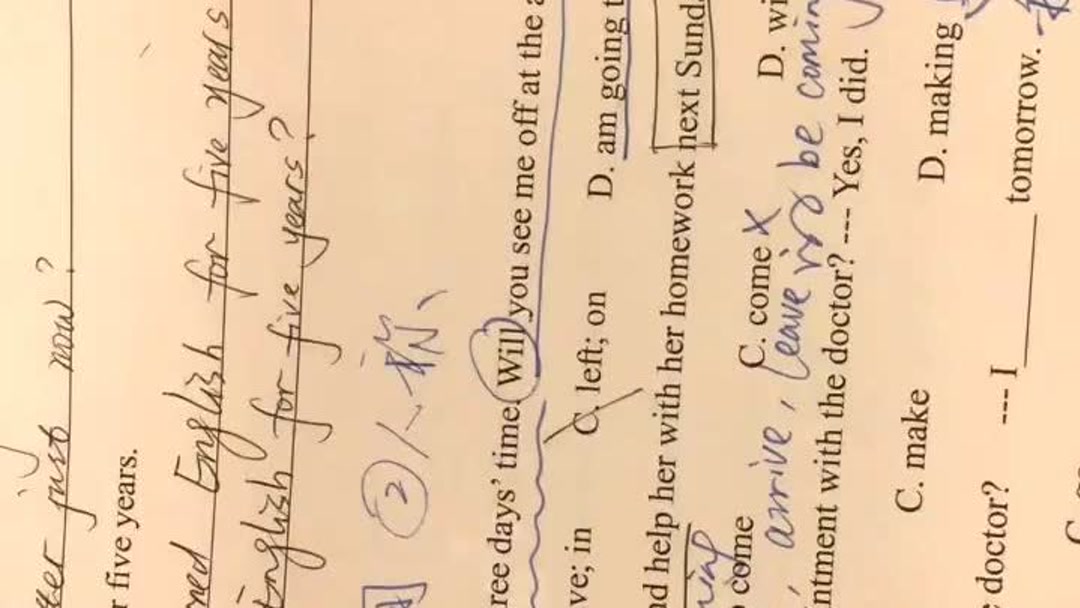 just now?
r five years.
English for five years
English for five years?
② 人称、
ree days' time. Will you see me off at the a
ve; in C. left; on D. am going t
nd help her with her homework next Sund
come C. come × D. wi
arrive, leave be coming
intment with the doctor? --- Yes, I did.
C. make D. making
doctor? --- I ______ tomorrow.